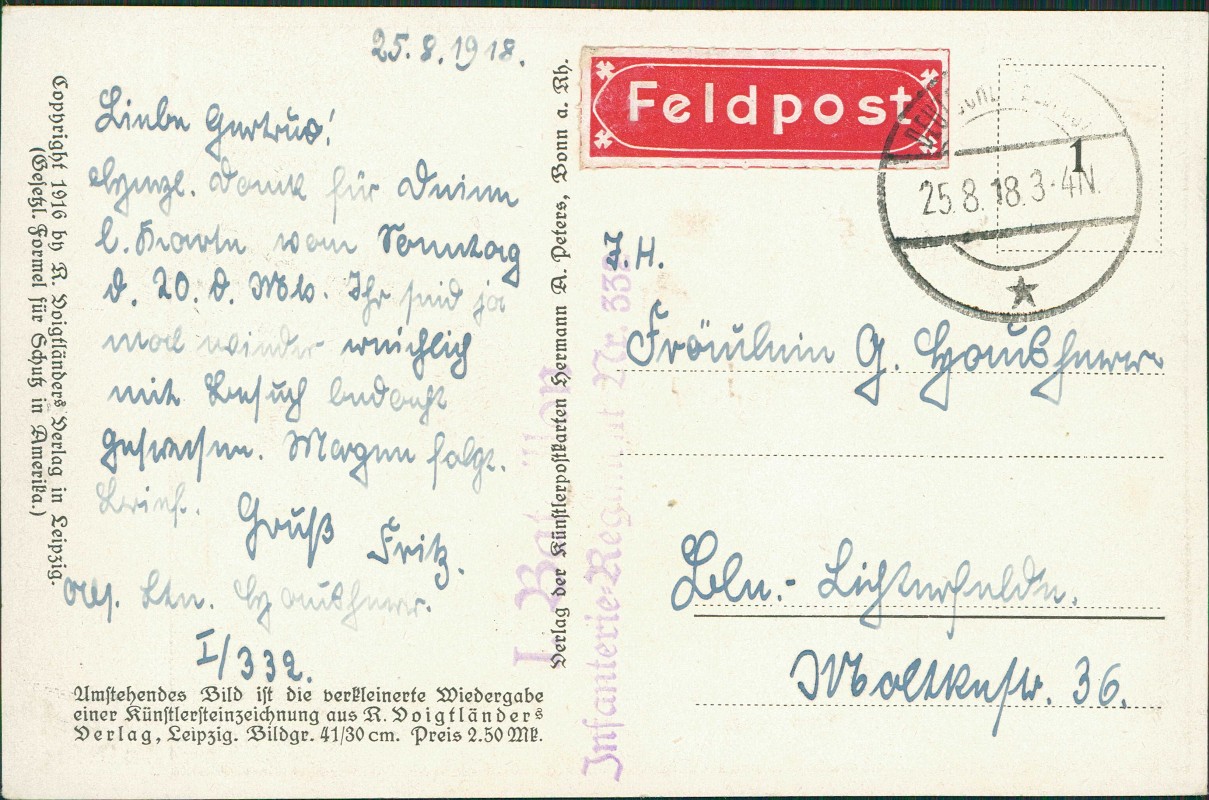 25.8.1918.
Liebe Gertrud!
Herzl. Dank für Deine
l. Karte vom Sonntag
d. 20. d. Mts. Ihr seid ja
mal wieder reichlich
mit Besuch bedacht
gewesen. Morgen folgt
Brief. Gruß
Fritz.
Ltn. Haushherr.
I/332.
Umstehendes Bild ist die verkleinerte Wiedergabe
einer Künstlersteinzeichnung aus R. Voigtländers
Verlag, Leipzig. Bildgr. 41/30 cm. Preis 2.50 Mk.
Copyright 1916 by R. Voigtländers Verlag in Leipzig.
(Gesetzl. Formel für Schutz in Amerika.)
Verlag der Künstlerpostkarten Hermann A. Peters, Bonn a. Rh.
I. Bataillon
Infanterie-Regiment Nr. 332
Feldpost
1
25.8.18.3-4N.
J. H.
Fräulein G. Haushherr
Bln.- Lichterfelde.
Moltkestr. 36.